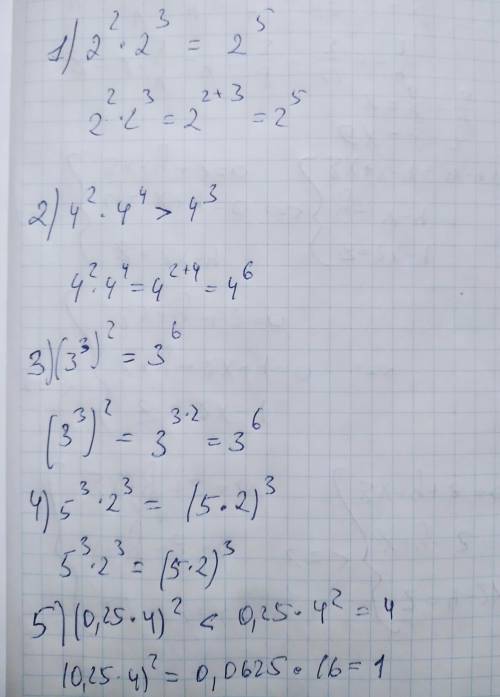 1) 2² · 2³ = 2⁵
2² · 2³ = 2²⁺³ = 2⁵
2) 4² · 4⁴ > 4³
4² · 4⁴ = 4²⁺⁴ = 4⁶
3) (3³)² = 3⁶
(3³)² = 3³˙² = 3⁶
4) 5³ · 2³ = (5 · 2)³
5³ · 2³ = (5 · 2)³
5) (0,25 · 4)² < 0,25 · 4² = 4
(0,25 · 4)² = 0,0625 · 16 = 1